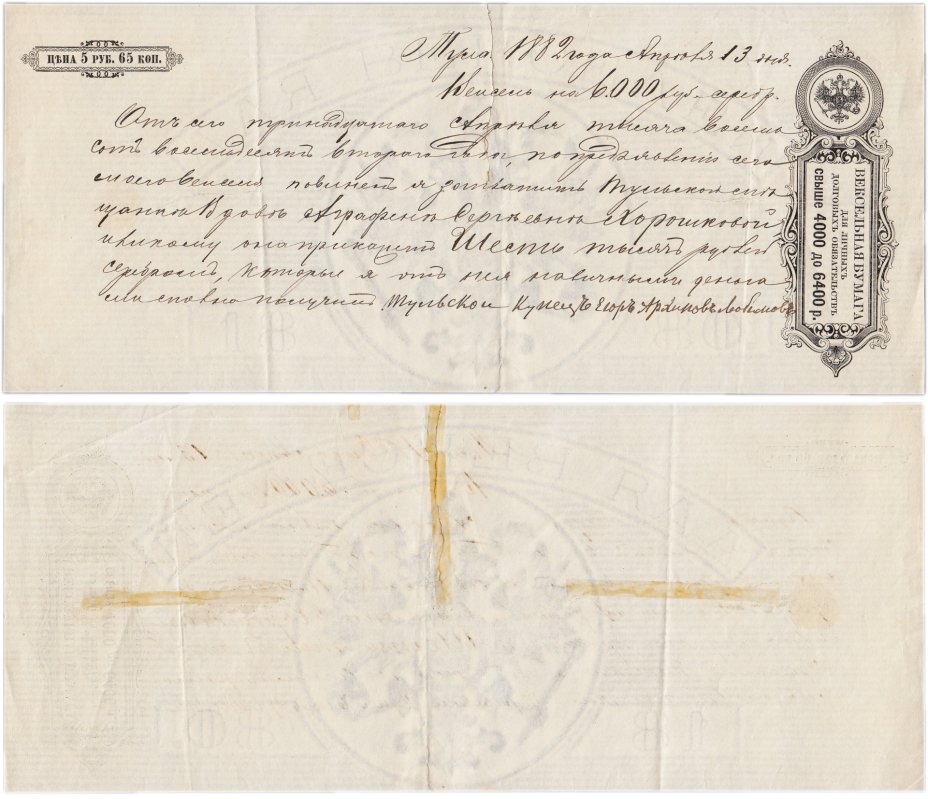 ЦѢНА 5 РУБ. 65 КОП.
Тула. 1882 года Апрѣля 13 дня.
Вексель на 6.000 руб. серебр.
Отъ сего тринадцатаго Апрѣля тысяча восемь
сотъ восемьдесятъ втораго года, по предъявленію сего
моего векселя повиненъ я заплатить Тульской мѣ
щанкѣ вдовѣ Аграфенѣ Сергѣевнѣ Хорошковой
или кому она прикажетъ Шесть тысячъ рублей
серебромъ, которые я отъ нея наличными деньга
ми сполна получилъ Тульской Купецъ Егоръ Архиповъ Любомовъ
ВЕКСЕЛЬНАЯ БУМАГА
ДЛЯ ЛИЧНЫХЪ
ДОЛГОВЫХЪ ОБЯЗАТЕЛЬСТВЪ
СВЫШЕ 4000 ДО 6400 Р.